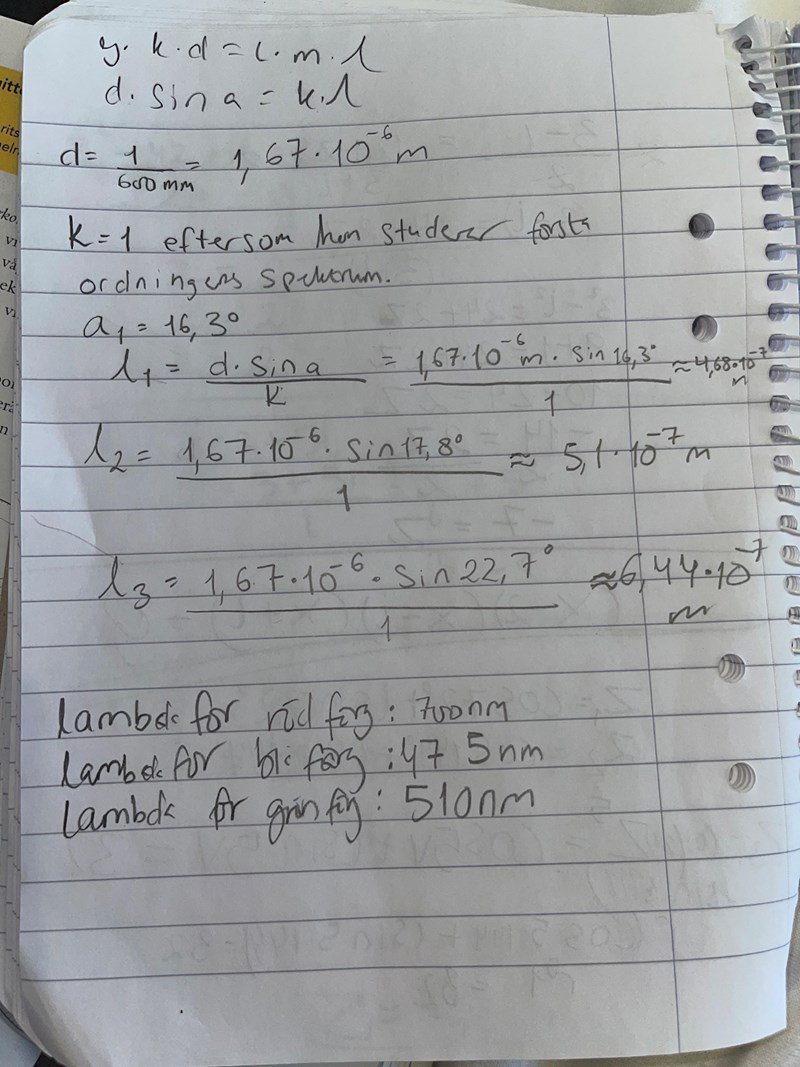 y. k.d = l.m.λ
d. sin a = k.λ
d = 1/600mm = 1,67.10^-6 m
k=1 eftersom hon studerar första
ordningens spektrum.
a₁ = 16,3°
λ₁ = d.sina/k = 1,67.10^-6 m. sin16,3°/1 ≈ 4,68.10^-7 m
λ₂ = 1,67.10^-6. sin17,8°/1 ≈ 5,1.10^-7 m
λ₃ = 1,67.10^-6. sin22,7°/1 ≈ 6,44.10^-7 m
Lambda för röd färg: 700nm
Lambda för blå färg: 475nm
Lambda för grön färg: 510nm